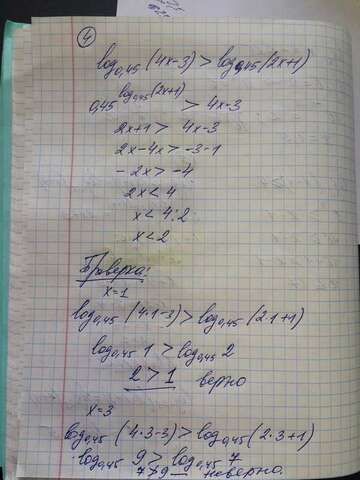 4
log₀,₄₅(4x-3) > log₀,₄₅(2x+1)
0,45^log₀,₄₅(2x+1) > 4x-3
2x+1 > 4x-3
2x-4x > -3-1
-2x > -4
2x < 4
x < 4:2
x < 2
Проверка:
x=1
log₀,₄₅(4·1-3) > log₀,₄₅(2·1+1)
log₀,₄₅ 1 > log₀,₄₅ 2
2 > 1 верно
x=3
log₀,₄₅(4·3-3) > log₀,₄₅(2·3+1)
log₀,₄₅ 9 > log₀,₄₅ 7
7 > 9 — неверно.